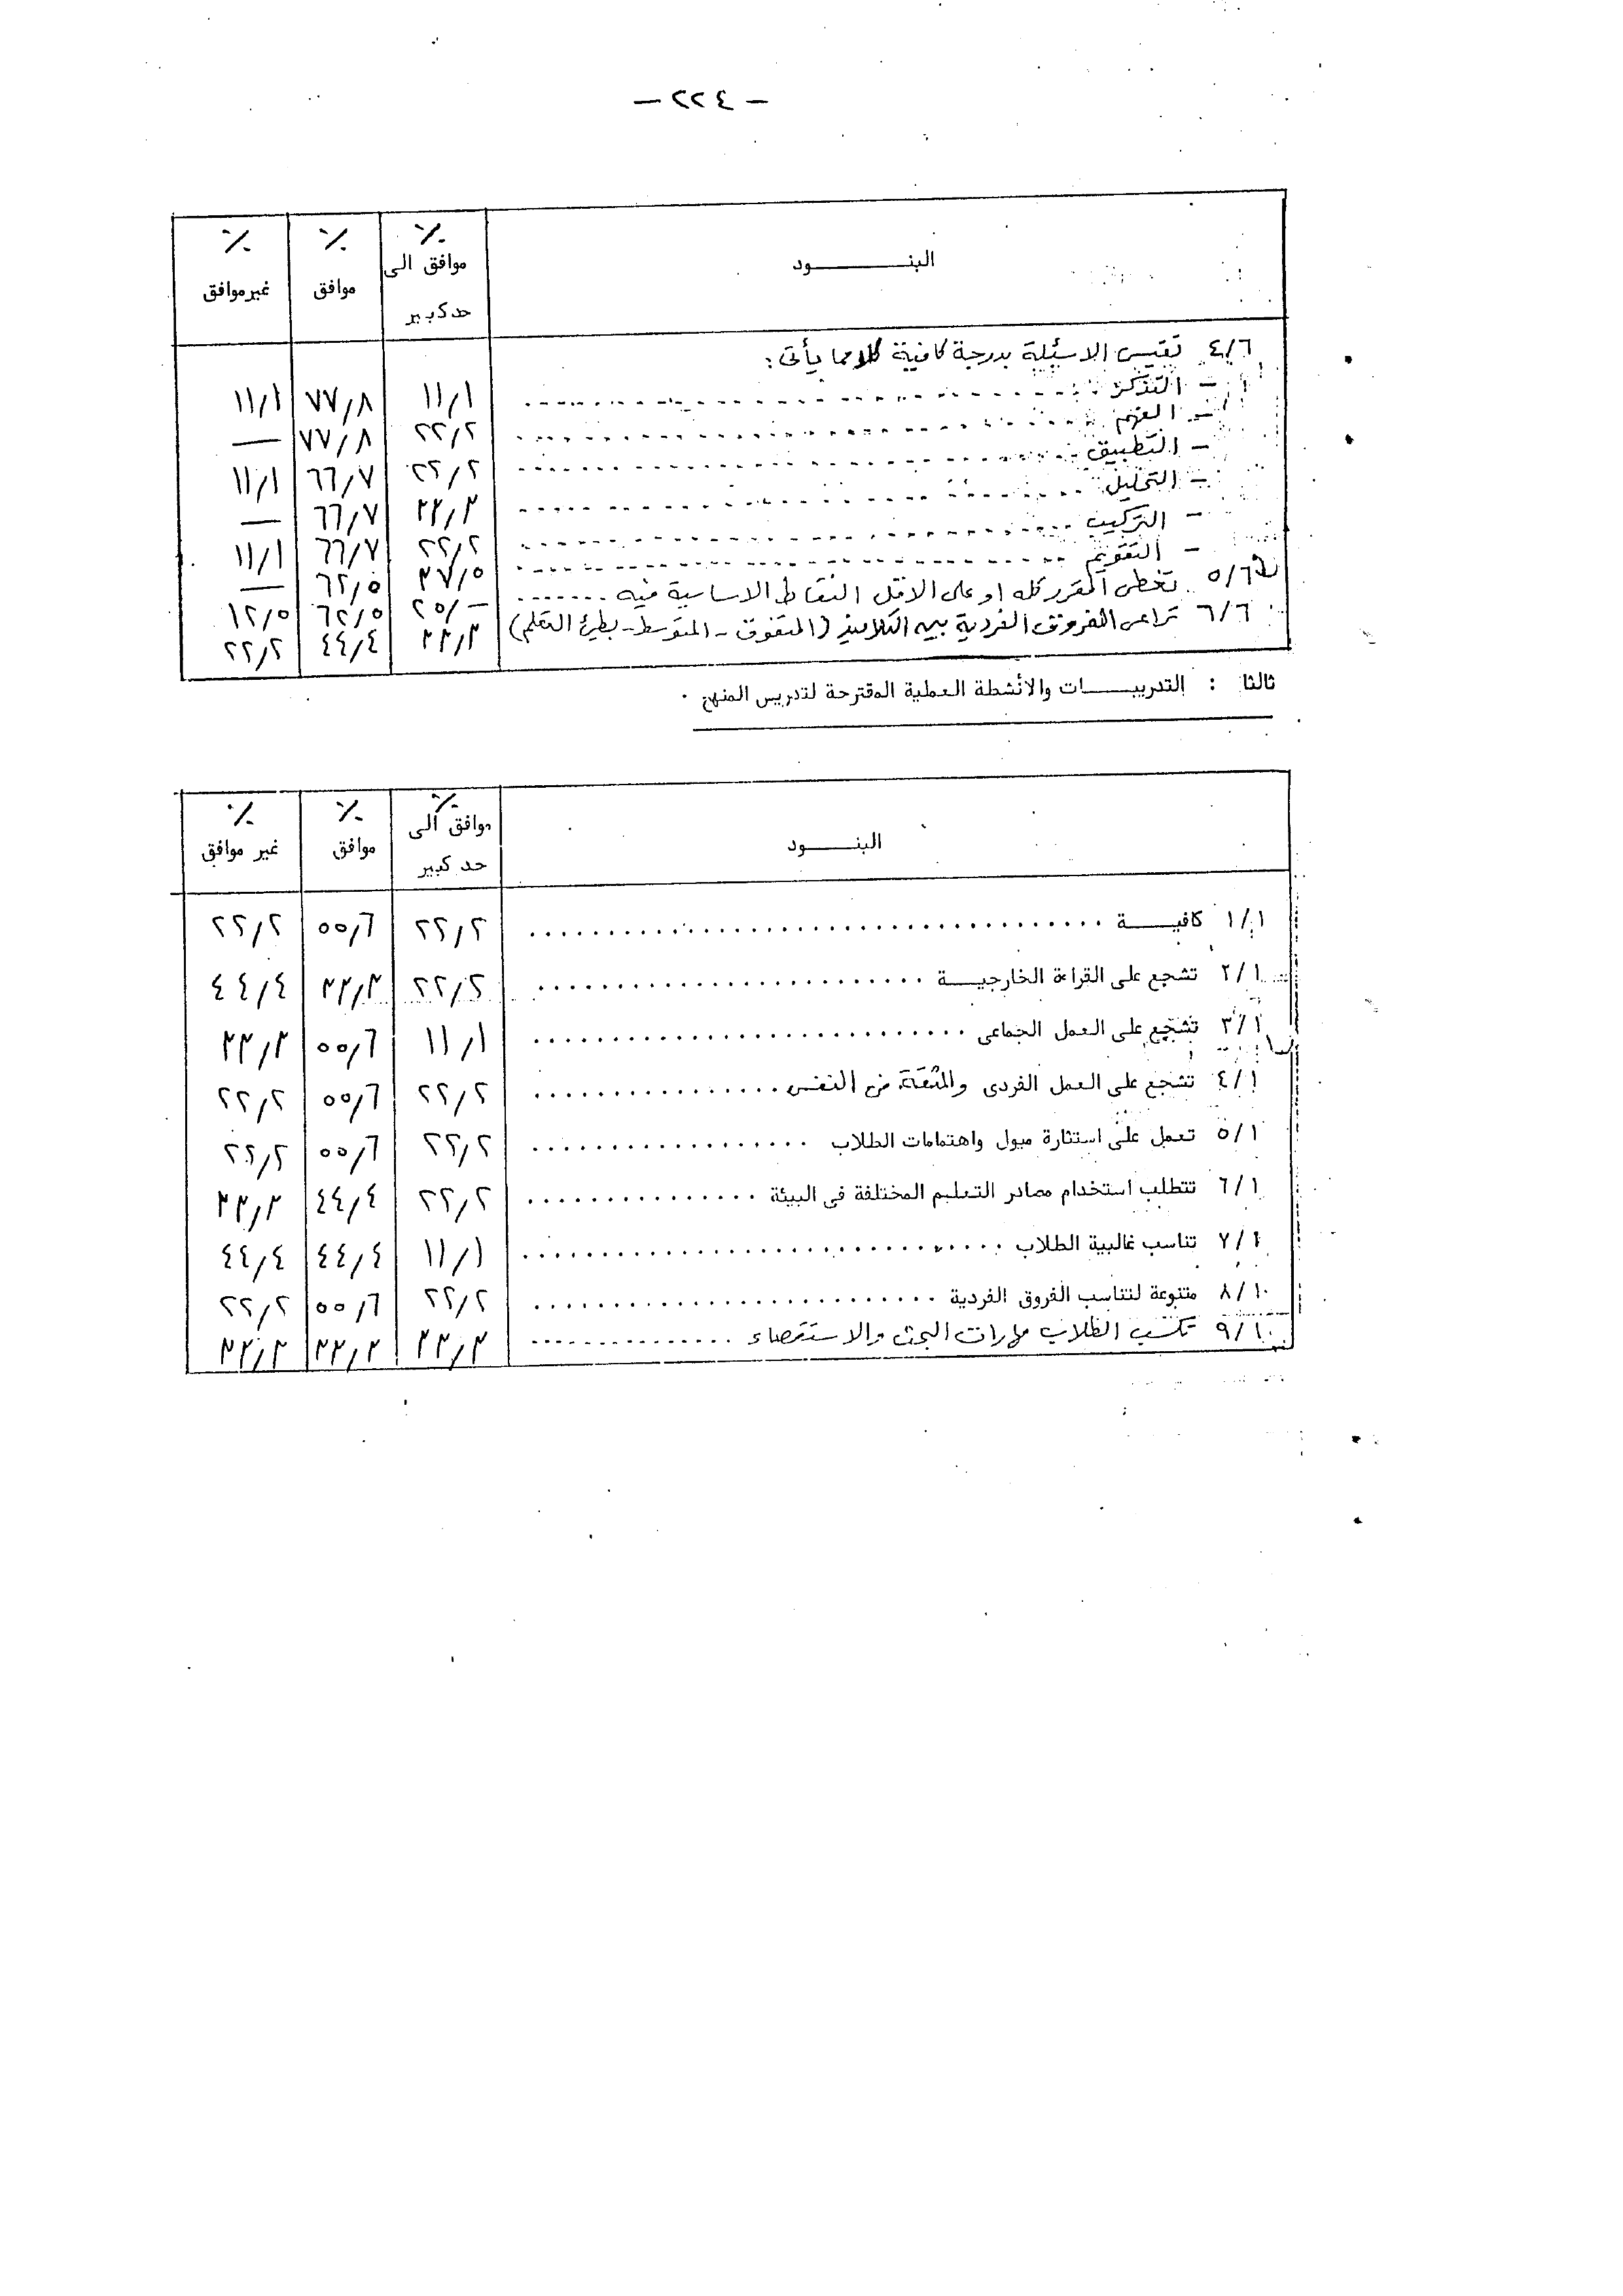 - ٢٢٤ -
البنـــــــود | ٪ موافق الى حد كبير | ٪ موافق | ٪ غير موافق
٤/٦ تقيس الاسئلة بدرجة كافية كلا مما يأتى :
- التذكر ........ ١١٫١ | ٧٧٫٨ | ١١٫١
- الفهم ........ ٢٢٫٢ | ٧٧٫٨ | —
- التطبيق ........ ٢٢٫٢ | ٦٦٫٧ | ١١٫١
- التحليل ........ ٣٣٫٣ | ٦٦٫٧ | —
- التركيب ........ ٢٢٫٢ | ٦٦٫٧ | ١١٫١
- التقويم ........ ٣٧٫٥ | ٦٢٫٥ | —
٥/٦ تغطى المقرر كله او على الاقل النقاط الاساسية فيه ........ ٢٥٫- | ٦٢٫٥ | ١٢٫٥
٦/٦ تراعى الفروق الفردية بين التلاميذ (المتفوق - المتوسط - بطىء التعلم) ٣٣٫٣ | ٤٤٫٤ | ٢٢٫٢
ثالثا : التدريبـــــات والأنشطة العملية المقترحة لتدريس المنهج .
البنـــــود | ٪ موافق الى حد كبير | ٪ موافق | ٪ غير موافق
١/١ كافيـــــة ........ ٢٢٫٢ | ٥٥٫٦ | ٢٢٫٢
٢/١ تشجع على القراءة الخارجيـــة ........ ٢٢٫٢ | ٣٣٫٣ | ٤٤٫٤
٣/١ تشجع على العمل الجماعى ........ ١١٫١ | ٥٥٫٦ | ٣٣٫٣
٤/١ تشجع على العمل الفردى والثقة فى النفس ........ ٢٢٫٢ | ٥٥٫٦ | ٢٢٫٢
٥/١ تعمل على استثارة ميول واهتمامات الطلاب ........ ٢٢٫٢ | ٥٥٫٦ | ٢٢٫٢
٦/١ تتطلب استخدام مصادر التعليم المختلفة فى البيئة ........ ٢٢٫٢ | ٤٤٫٤ | ٣٣٫٣
٧/١ تناسب غالبية الطلاب ........ ١١٫١ | ٤٤٫٤ | ٤٤٫٤
٨/١ متنوعة لتناسب الفروق الفردية ........ ٢٢٫٢ | ٥٥٫٦ | ٢٢٫٢
٩/١ تكسب الطلاب مهارات البحث والاستقصاء ........ ٣٣٫٣ | ٣٣٫٣ | ٣٣٫٣